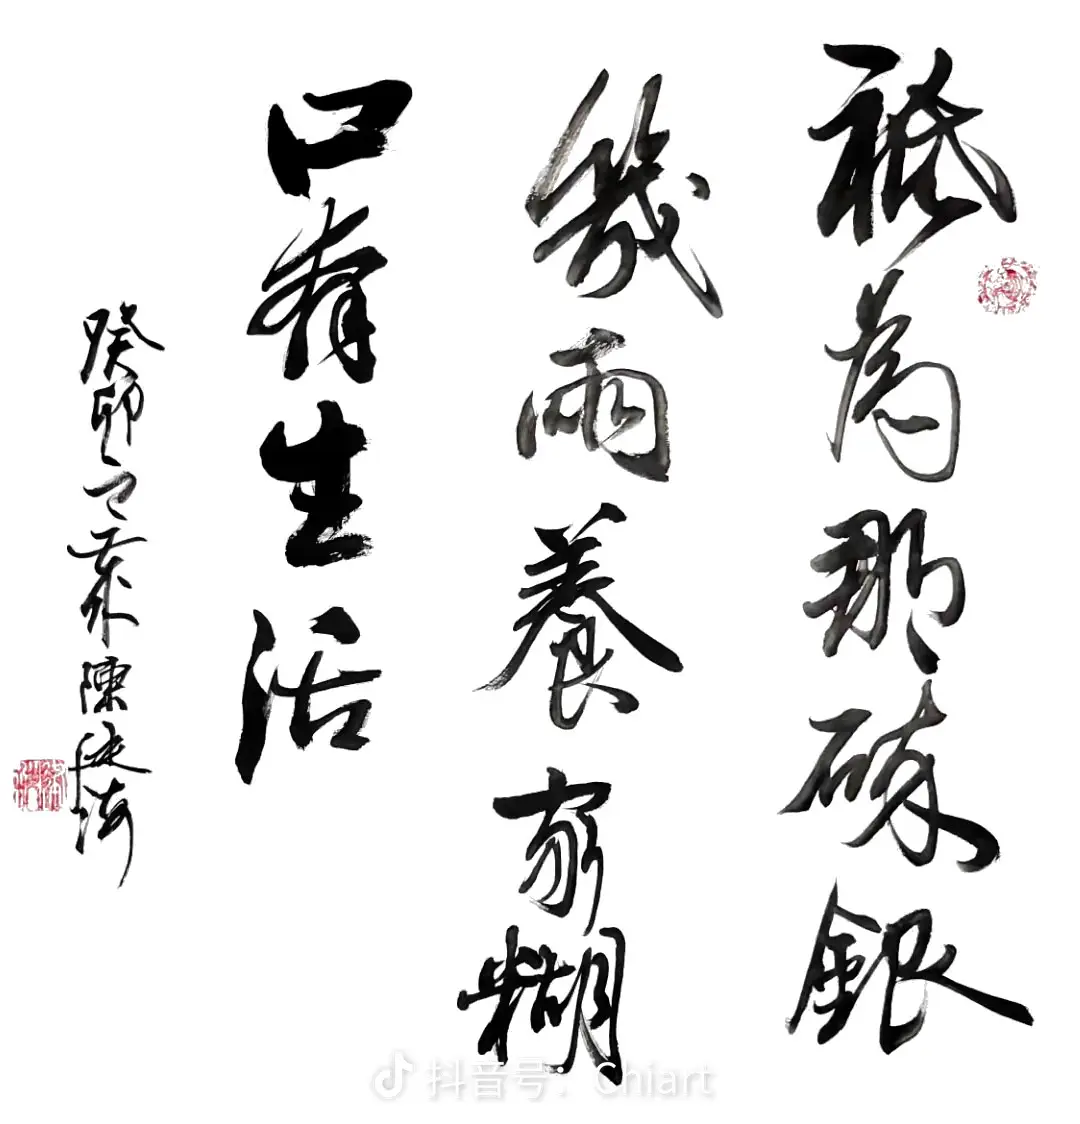 祗為那碎銀
幾兩養家糊
口有生活
癸卯之陳
抖音号：Chiart